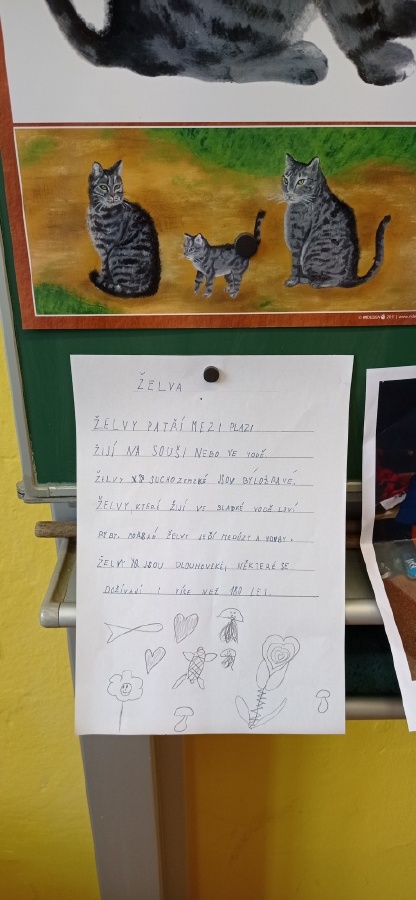 ŽELVA
ŽELVY PATŘÍ MEZI PLAZI
ŽIJÍ NA SOUŠI NEBO VE VODĚ.
ŽELVY SUCHOZEMSKÉ JSOU BÝLOŽRAVÉ.
ŽELVY KTERÉ ŽIJÍ VE SLADKÉ VODĚ LOVÍ
RYBY. MOŘSKÉ ŽELVY JEDÍ MEDÚZY A
ŽELVY JSOU DLOUHOVĚKÉ, NĚKTERÉ SE
DOŽÍVAJÍ I VÍCE NEŽ 180 LET.